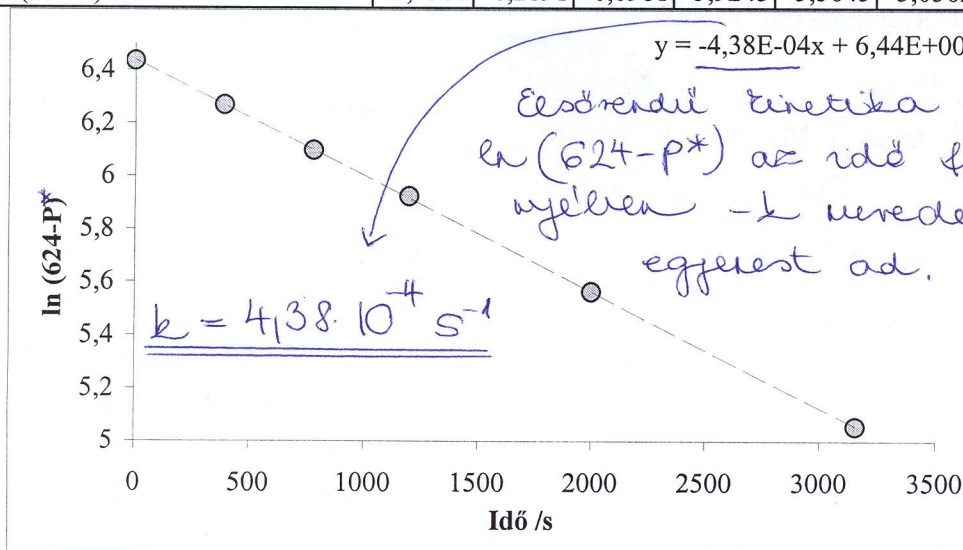 y = -4,38E-04x + 6,44E+00
Elsőrendű kinetika
ln (624-P*) az idő f
nyében -k merede
egyenest ad.
k = 4,38·10⁻⁴ s⁻¹
ln (624-P*)
6,4
6,2
6
5,8
5,6
5,4
5,2
5
0 500 1000 1500 2000 2500 3000 3500
Idő /s